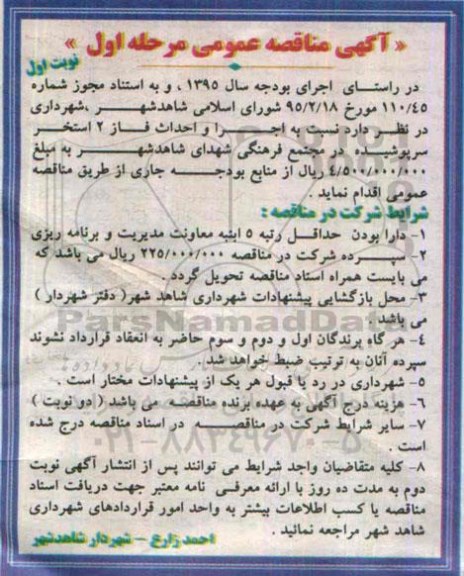 « آگهی مناقصه عمومی مرحله اول »
نوبت اول
در راستای اجرای بودجه سال ۱۳۹۵ ، و به استناد مجوز شماره
۱۱۰/۴۵ مورخ ۹۵/۲/۱۸ شورای اسلامی شاهدشهر ،شهرداری
در نظر دارد نسبت به اجرا و احداث فاز ۲ استخر
سرپوشیده در مجتمع فرهنگی شهدای شاهدشهر به مبلغ
۴/۵۰۰/۰۰۰/۰۰۰ ریال از منابع بودجه جاری از طریق مناقصه
عمومی اقدام نماید .
شرایط شرکت در مناقصه :
۱- دارا بودن حداقل رتبه ۵ ابنیه معاونت مدیریت و برنامه ریزی
۲- سپرده شرکت در مناقصه ۲۲۵/۰۰۰/۰۰۰ ریال می باشد که
می بایست همراه اسناد مناقصه تحویل گردد .
۳- محل بازگشایی پیشنهادات شهرداری شاهد شهر( دفتر شهردار )
می باشد .
۴- هر گاه برندگان اول و دوم و سوم حاضر به انعقاد قرارداد نشوند
سپرده آنان به ترتیب ضبط خواهد شد .
۵- شهرداری در رد یا قبول هر یک از پیشنهادات مختار است .
۶- هزینه درج آگهی به عهده برنده مناقصه می باشد ( دو نوبت )
۷- سایر شرایط شرکت در مناقصه در اسناد مناقصه درج شده
است .
۸- کلیه متقاضیان واجد شرایط می توانند پس از انتشار آگهی نوبت
دوم به مدت ده روز با ارائه معرفی نامه معتبر جهت دریافت اسناد
مناقصه یا کسب اطلاعات بیشتر به واحد امور قراردادهای شهرداری
شاهد شهر مراجعه نمائید .
احمد زارع – شهردار شاهدشهر
ParsNamadData
۰۲۱-۸۸۳۴۹۶۷۰-۵